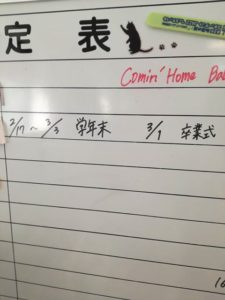 定表
Comin' Home Ba
2/17～3/3 学年末 3/1 卒業式